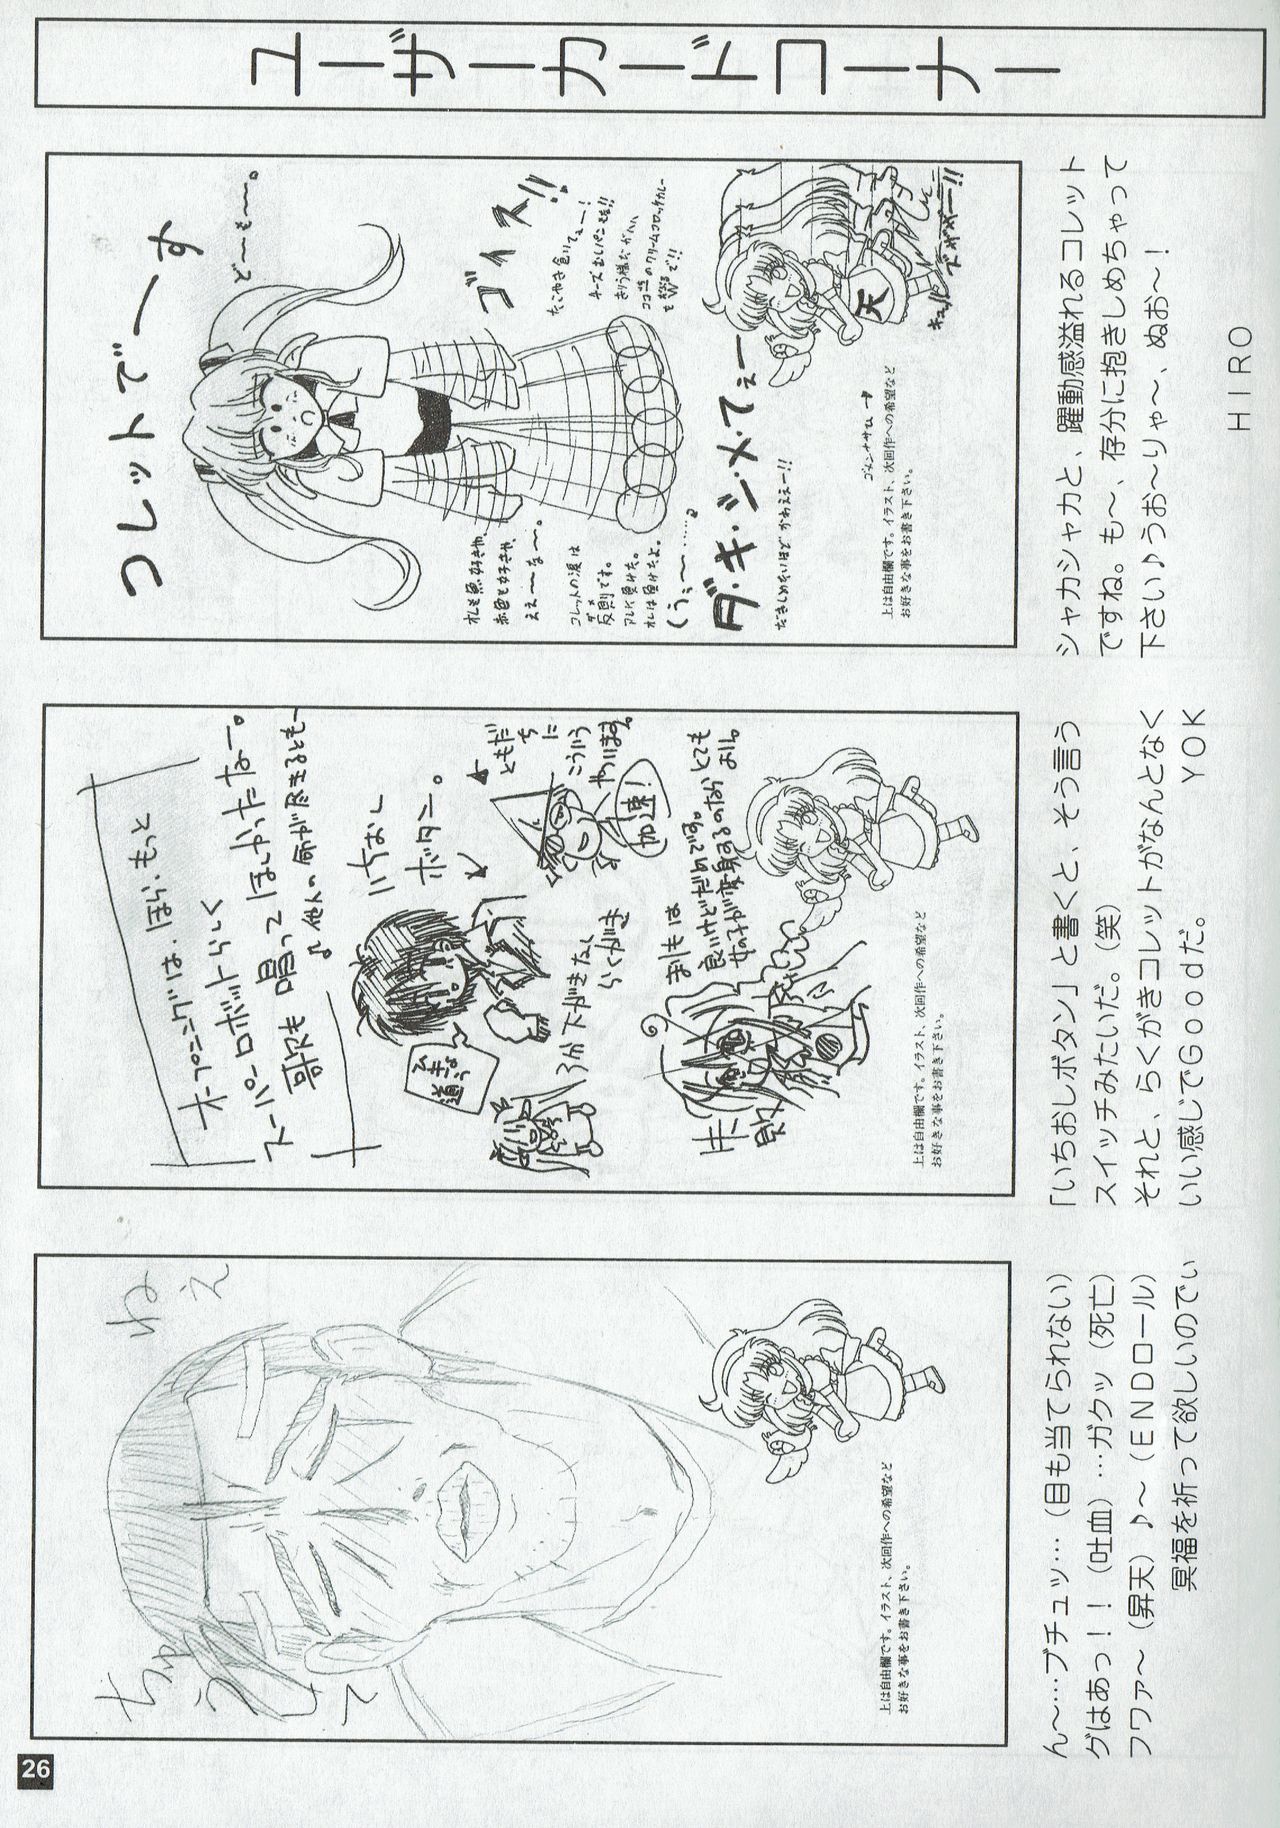 ユーザーカードコーナー
コレットでーーす
ど〜も〜。
ゴイス!!
たこやき色りてぇー!
チーズむしパンもな!!
オレも魚好きや、
赤色も好きや、
ええーなー。
コレットの涙は
反則です。
ダメ
オレは負けたよ。
(うぅ〜……♪
ダ・キ・シ・メ・てぇー
だきしめたいほどかわええー!!
ゴメンナサイ→
天
ズガガガー!!
上は自由欄です。イラスト、次回作への希望など
お好きな事をお書き下さい。
シャカシャカと、躍動感溢れるコレット
ですね。も〜、存分に抱きしめちゃって
下さい♪うお〜りゃ〜、ぬお〜!
HIRO
オープニングは、ほら、もっと
スーパーロボットらしく
歌も唱ってほしかったなー。
♪他人の命が尽きるともー
いちおし
ボタン。
ともだち
に
こういう
やついます。
加速!
3分下がきなし
らくがき
まりもは
良いけどだめです。
女の子が変身するのならとても
よし。
上は自由欄です。イラスト、次回作への希望など
お好きな事をお書き下さい。
「いちおしボタン」と書くと、そう言う
スイッチみたいだ。(笑)
それと、らくがきコレットがなんとなく
いい感じでGoodだ。
YOK
ねえ
ちゅう
して
上は自由欄です。イラスト、次回作への希望など
お好きな事をお書き下さい。
ん〜…ブチュッ…(目も当てられない)
グはあっ!!(吐血)…ガクッ(死亡)
フワァ〜(昇天)♪〜(ENDロール)
冥福を祈って欲しいのでぃ
26